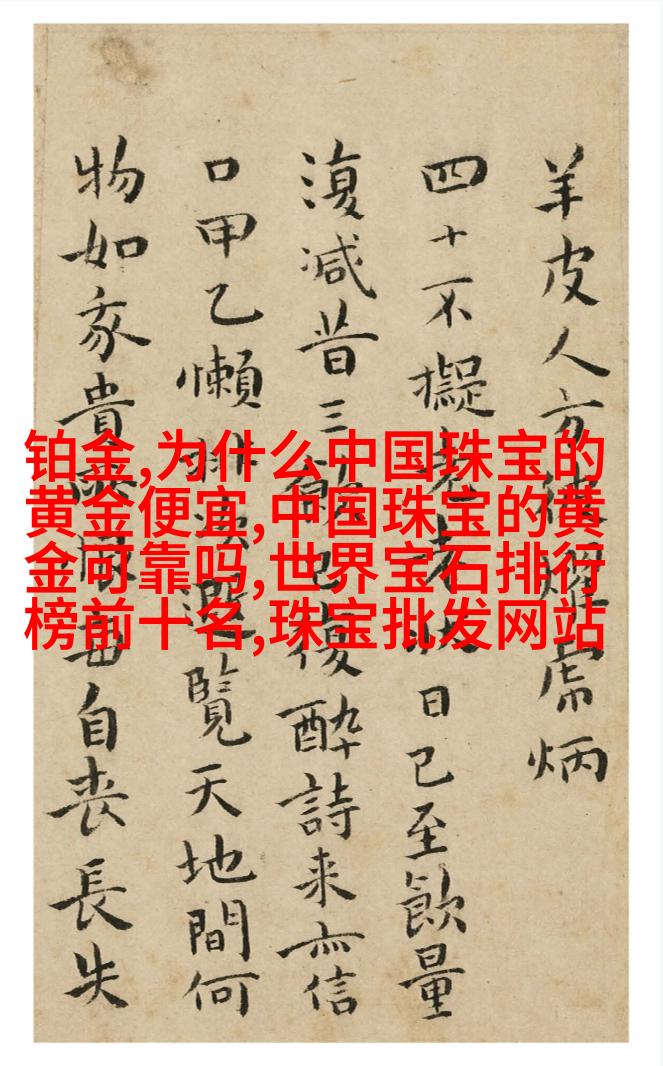 羊皮人方耀炳
四十不擬老狀日已至飲量
復減昔三復醉詩来亦信
口甲乙懶排覽天地間何
物如我貴自丧長失
铂金,为什么中国珠宝的
黄金便宜,中国珠宝的黄
金可靠吗,世界宝石排行
榜前十名,珠宝批发网站